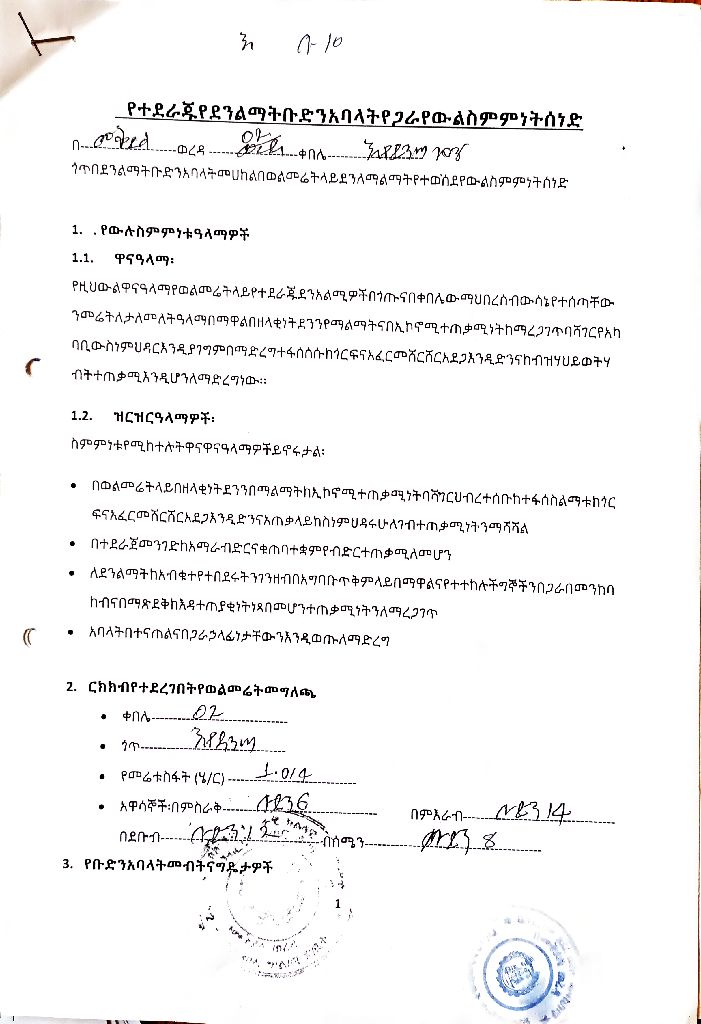 የተደራጁየደንልማትቡድንአባላትየጋራየውልስምምነትሰነድ
በ---------ወረዳ---------ቀበሌ---------
ጎጥበደንልማትቡድንአባላትመሀከልበወልመሬትላይደንለማልማትየተወሰደየውልስምምነትሰነድ
1. .የውሉስምምነቱዓላማዎች
1.1. ዋናዓላማ፡
የዚህውልዋናዓላማየወልመሬትላይየተደራጁደንአልሚዎችበጎጡናበቀበሌውማህበረሰብውሳኔየተሰጣቸው
ንመሬትለታለመለትዓላማበማዋልበዘላቂነትደንንየማልማትናበኢኮኖሚተጠቃሚነትከማረጋገጥባሻገርየአካ
ባቢውስነምህዳርእንዲያገግምበማድረግተፋሰሰሱከጎርፍናአፈርመሸርሸርአደጋእንዲድንናከብዝሃህይወትሃ
ብትተጠቃሚእንዲሆንለማድረግነው።
1.2. ዝርዝርዓላማዎች፡
ስምምነቱየሚከተሉትዋናዋናዓላማዎችይኖሩታል፡
• በወልመሬትላይበዘላቂነትደንንበማልማትከኢኮኖሚተጠቃሚነትባሻገርህብረተሰቡከተፋሰስልማቱከጎር
ፍናአፈርመሸርሸርአደጋእንዲድንናአጠቃላይከስነምህዳሩሁለገብተጠቃሚነትንማሻሻል
• በተደራጀመንገድከአማራብድርናቁጠባተቋምየብድርተጠቃሚለመሆን
• ለደንልማትከአብቁተየተበደሩትንገንዘብበአግባቡጥቅምላይበማዋልናየተተከሉችግኞችንበጋራበመንከባ
ከብናበማጽደቅከእዳተጠያቂነትነጻበመሆንተጠቃሚነትንለማረጋገጥ
• አባላትበተናጠልናበጋራኃላፊነታቸውንእንዲወጡለማድረግ
2. ርክክብየተደረገበትየወልመሬትመግለጫ
• ቀበሌ---------02
• ጎጥ---------
• የመሬቱስፋት (ሄ/ር) ---------1.014
• አዋሳኞች፡በምስራቅ---------6 በምእራብ---------14
በደቡብ---------12 በሰሜን---------8
3. የቡድንአባላትመብትናግዴታዎች
1